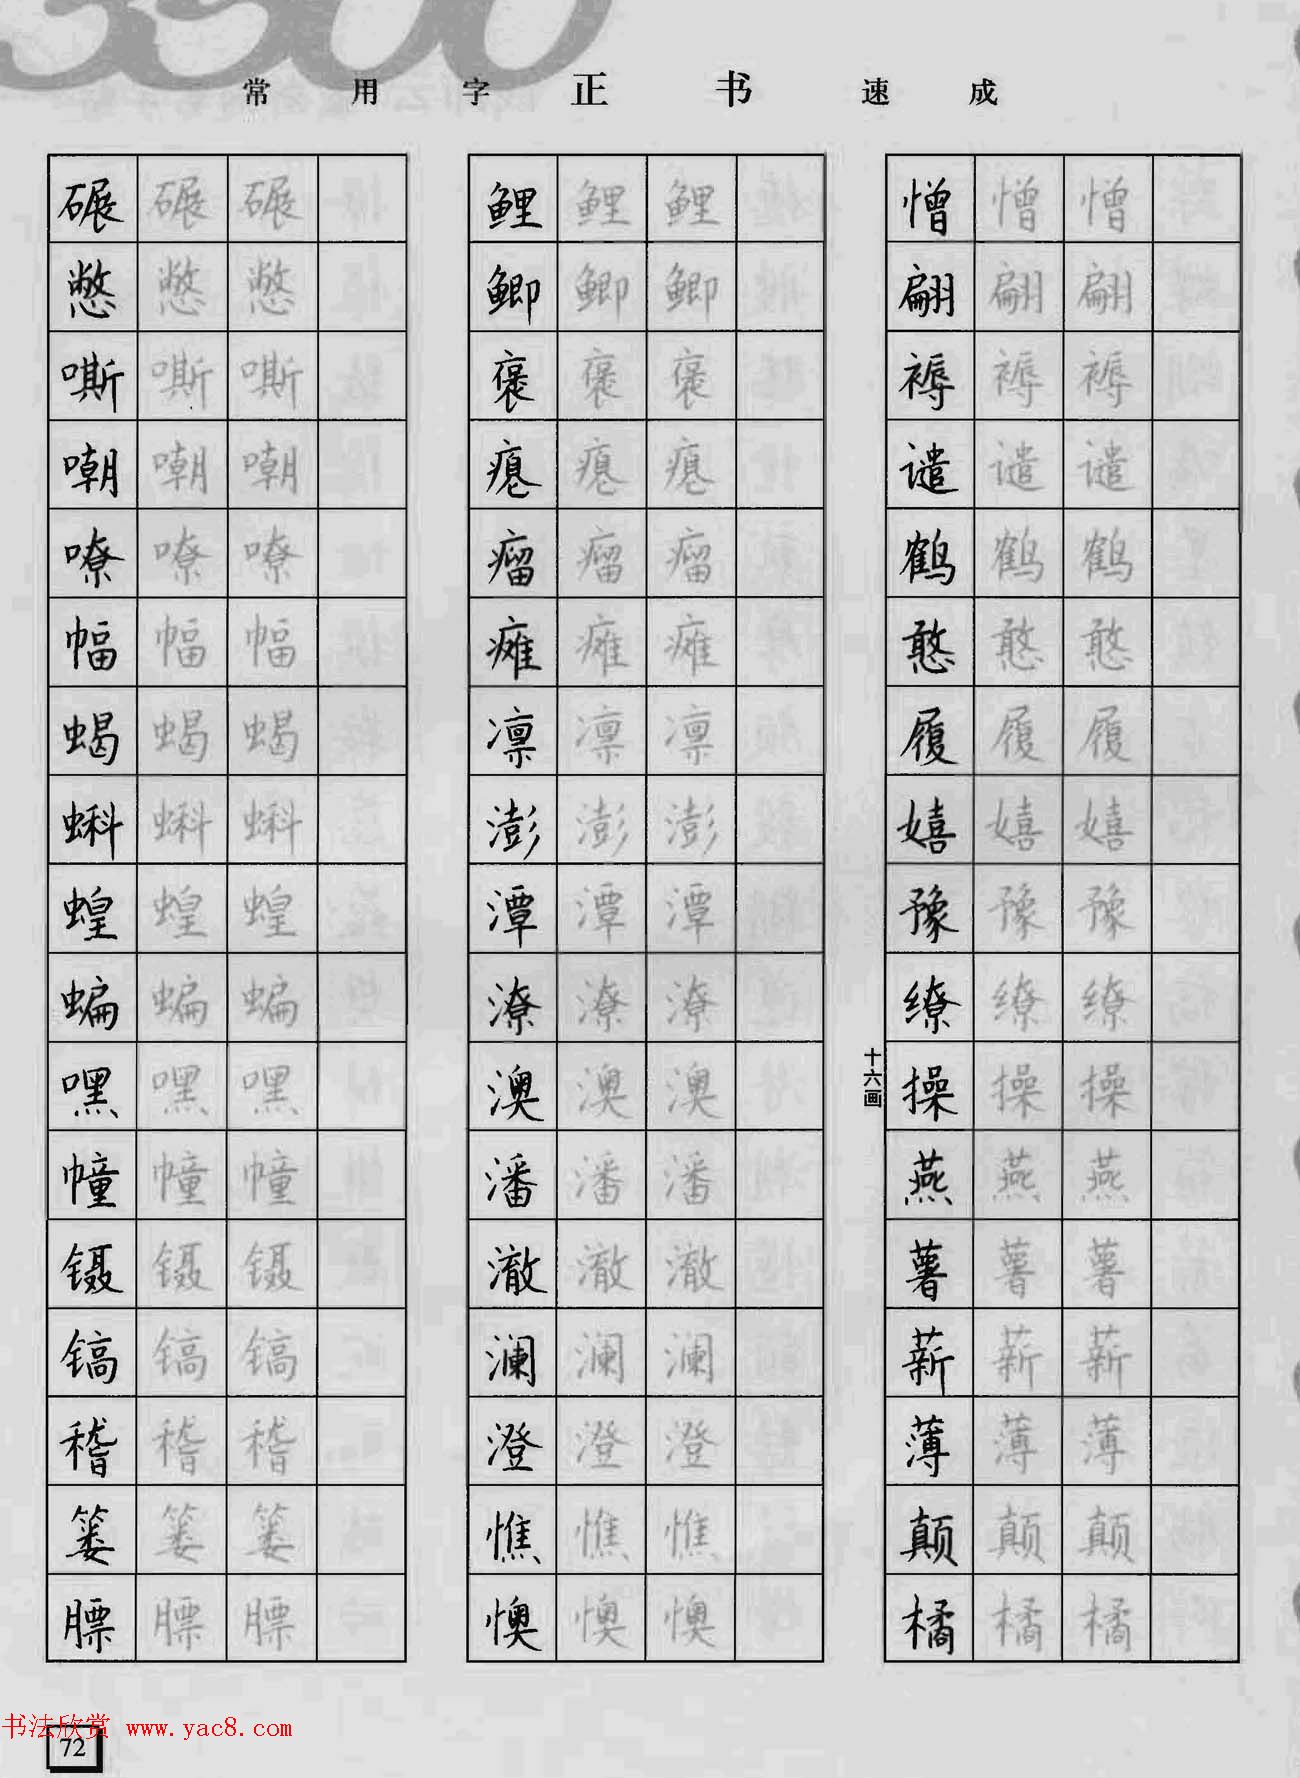 3500
常用字正书速成
碾 碾 碾
憋 憋 憋
嘶 嘶 嘶
嘲 嘲 嘲
嘹 嘹 嘹
幅 幅 幅
蝎 蝎 蝎
蝌 蝌 蝌
蝗 蝗 蝗
蝙 蝙 蝙
嘿 嘿 嘿
幢 幢 幢
镊 镊 镊
镐 镐 镐
稽 稽 稽
篓 篓 篓
膘 膘 膘
鲤 鲤 鲤
鲫 鲫 鲫
褒 褒 褒
瘪 瘪 瘪
瘤 瘤 瘤
瘫 瘫 瘫
凛 凛 凛
澎 澎 澎
潭 潭 潭
潦 潦 潦
澳 澳 澳
潘 潘 潘
澈 澈 澈
澜 澜 澜
澄 澄 澄
憔 憔 憔
懊 懊 懊
憎 憎 憎
翩 翩 翩
褥 褥 褥
谴 谴 谴
鹤 鹤 鹤
憨 憨 憨
履 履 履
嬉 嬉 嬉
豫 豫 豫
缭 缭 缭
十六画
操 操 操
燕 燕 燕
薯 薯 薯
薪 薪 薪
薄 薄 薄
颠 颠 颠
橘 橘 橘
书法欣赏 www.yac8.com
72